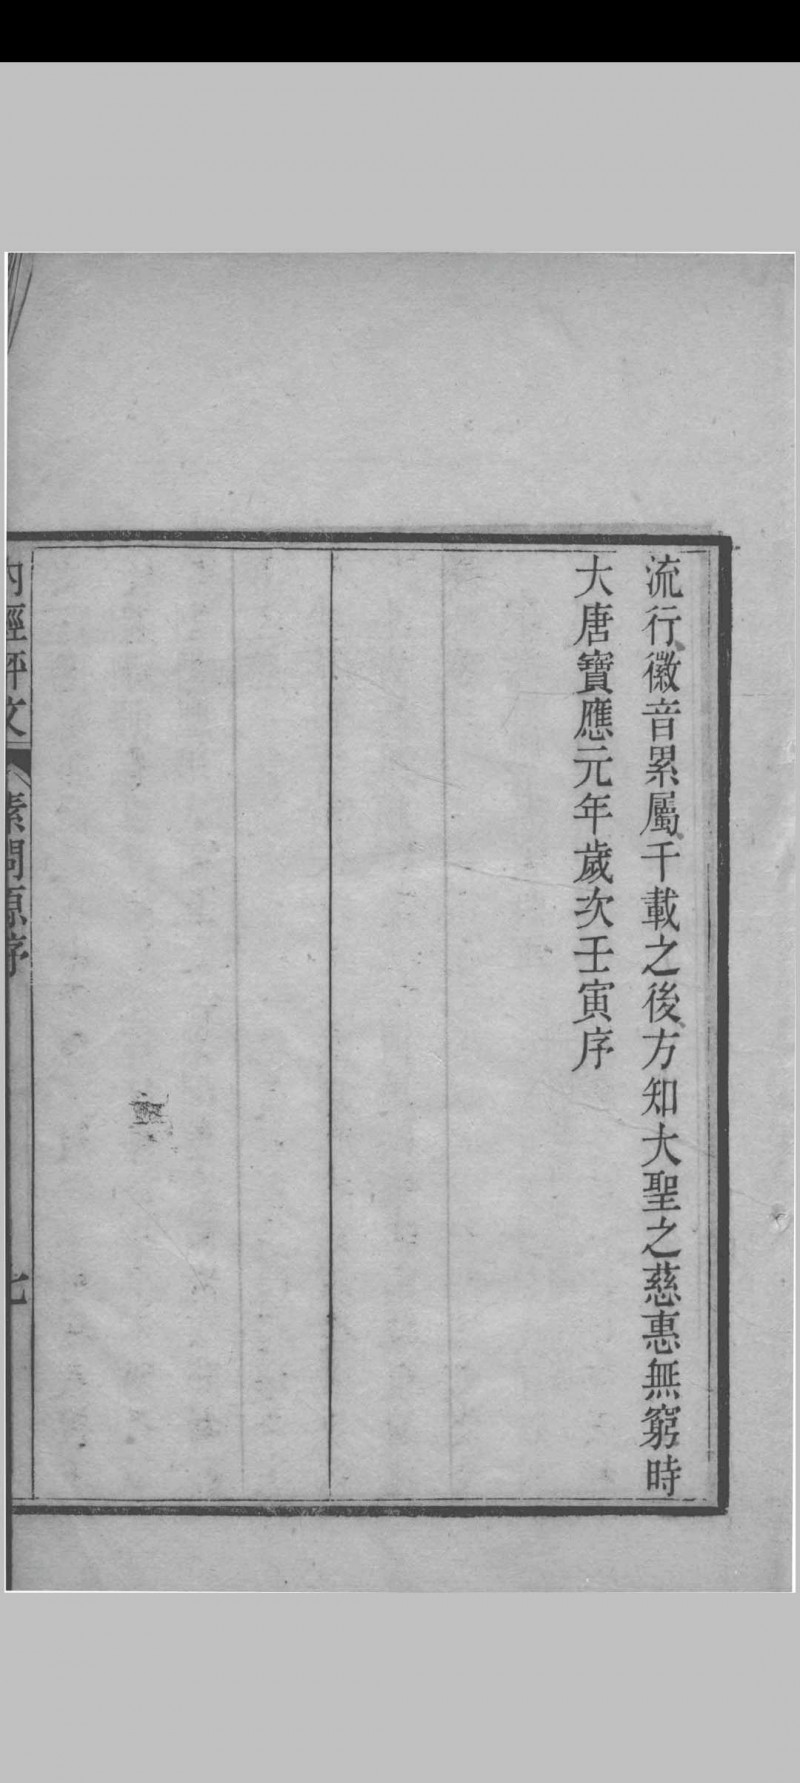 流行徽音累屬千載之後方知大聖之慈惠無窮時
大唐寶應元年歲次壬寅序
內經評文
素問原序
七